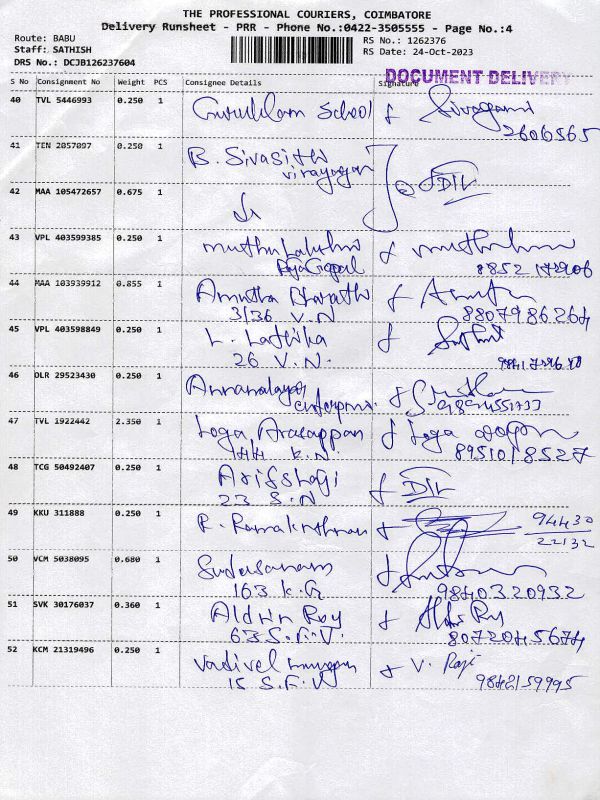 THE PROFESSIONAL COURIERS, COIMBATORE
Delivery Runsheet - PRR - Phone No.:0422-3505555 - Page No.:4
Route: BABU
Staff: SATHISH
DRS No.: DCJB126237604
RS No.: 1262376
RS Date: 24-Oct-2023
DOCUMENT DELIVERY
S No Consignment No Weight PCS Consignee Details Signature
40 TVL 5446993 0.250 1 Gurukulam School
2606565
41 TEN 2057097 0.250 1 B. Sivasithi
vinayagar
42 MAA 105472657 0.675 1
43 VPL 403599385 0.250 1 muthu Lakshmi
Raja Gopal
44 MAA 103939912 0.855 1 Amutha Bharathi
3/36 V.N 8807986264
45 VPL 403598849 0.250 1 L. Lathika
26 V.N.
46 DLR 29523430 0.250 1 Annamalaiyar
enterprise.
47 TVL 1922442 2.350 1 Loga Arasappan Loga
144 K.N. 8951018527
48 TCG 50492407 0.250 1
23 S.N
49 KKU 311888 0.250 1 R. Ramakrithnan 94430
22132
50 VCM 5038095 0.680 1 Sudarsanam
163 K.G 9840320932
51 SVK 30176037 0.360 1 Aldrin Roy
63 S.F.V. 8072045674
52 KCM 21319496 0.250 1 Vadivel murugan V. Raji
15 S.F.V 9842159995